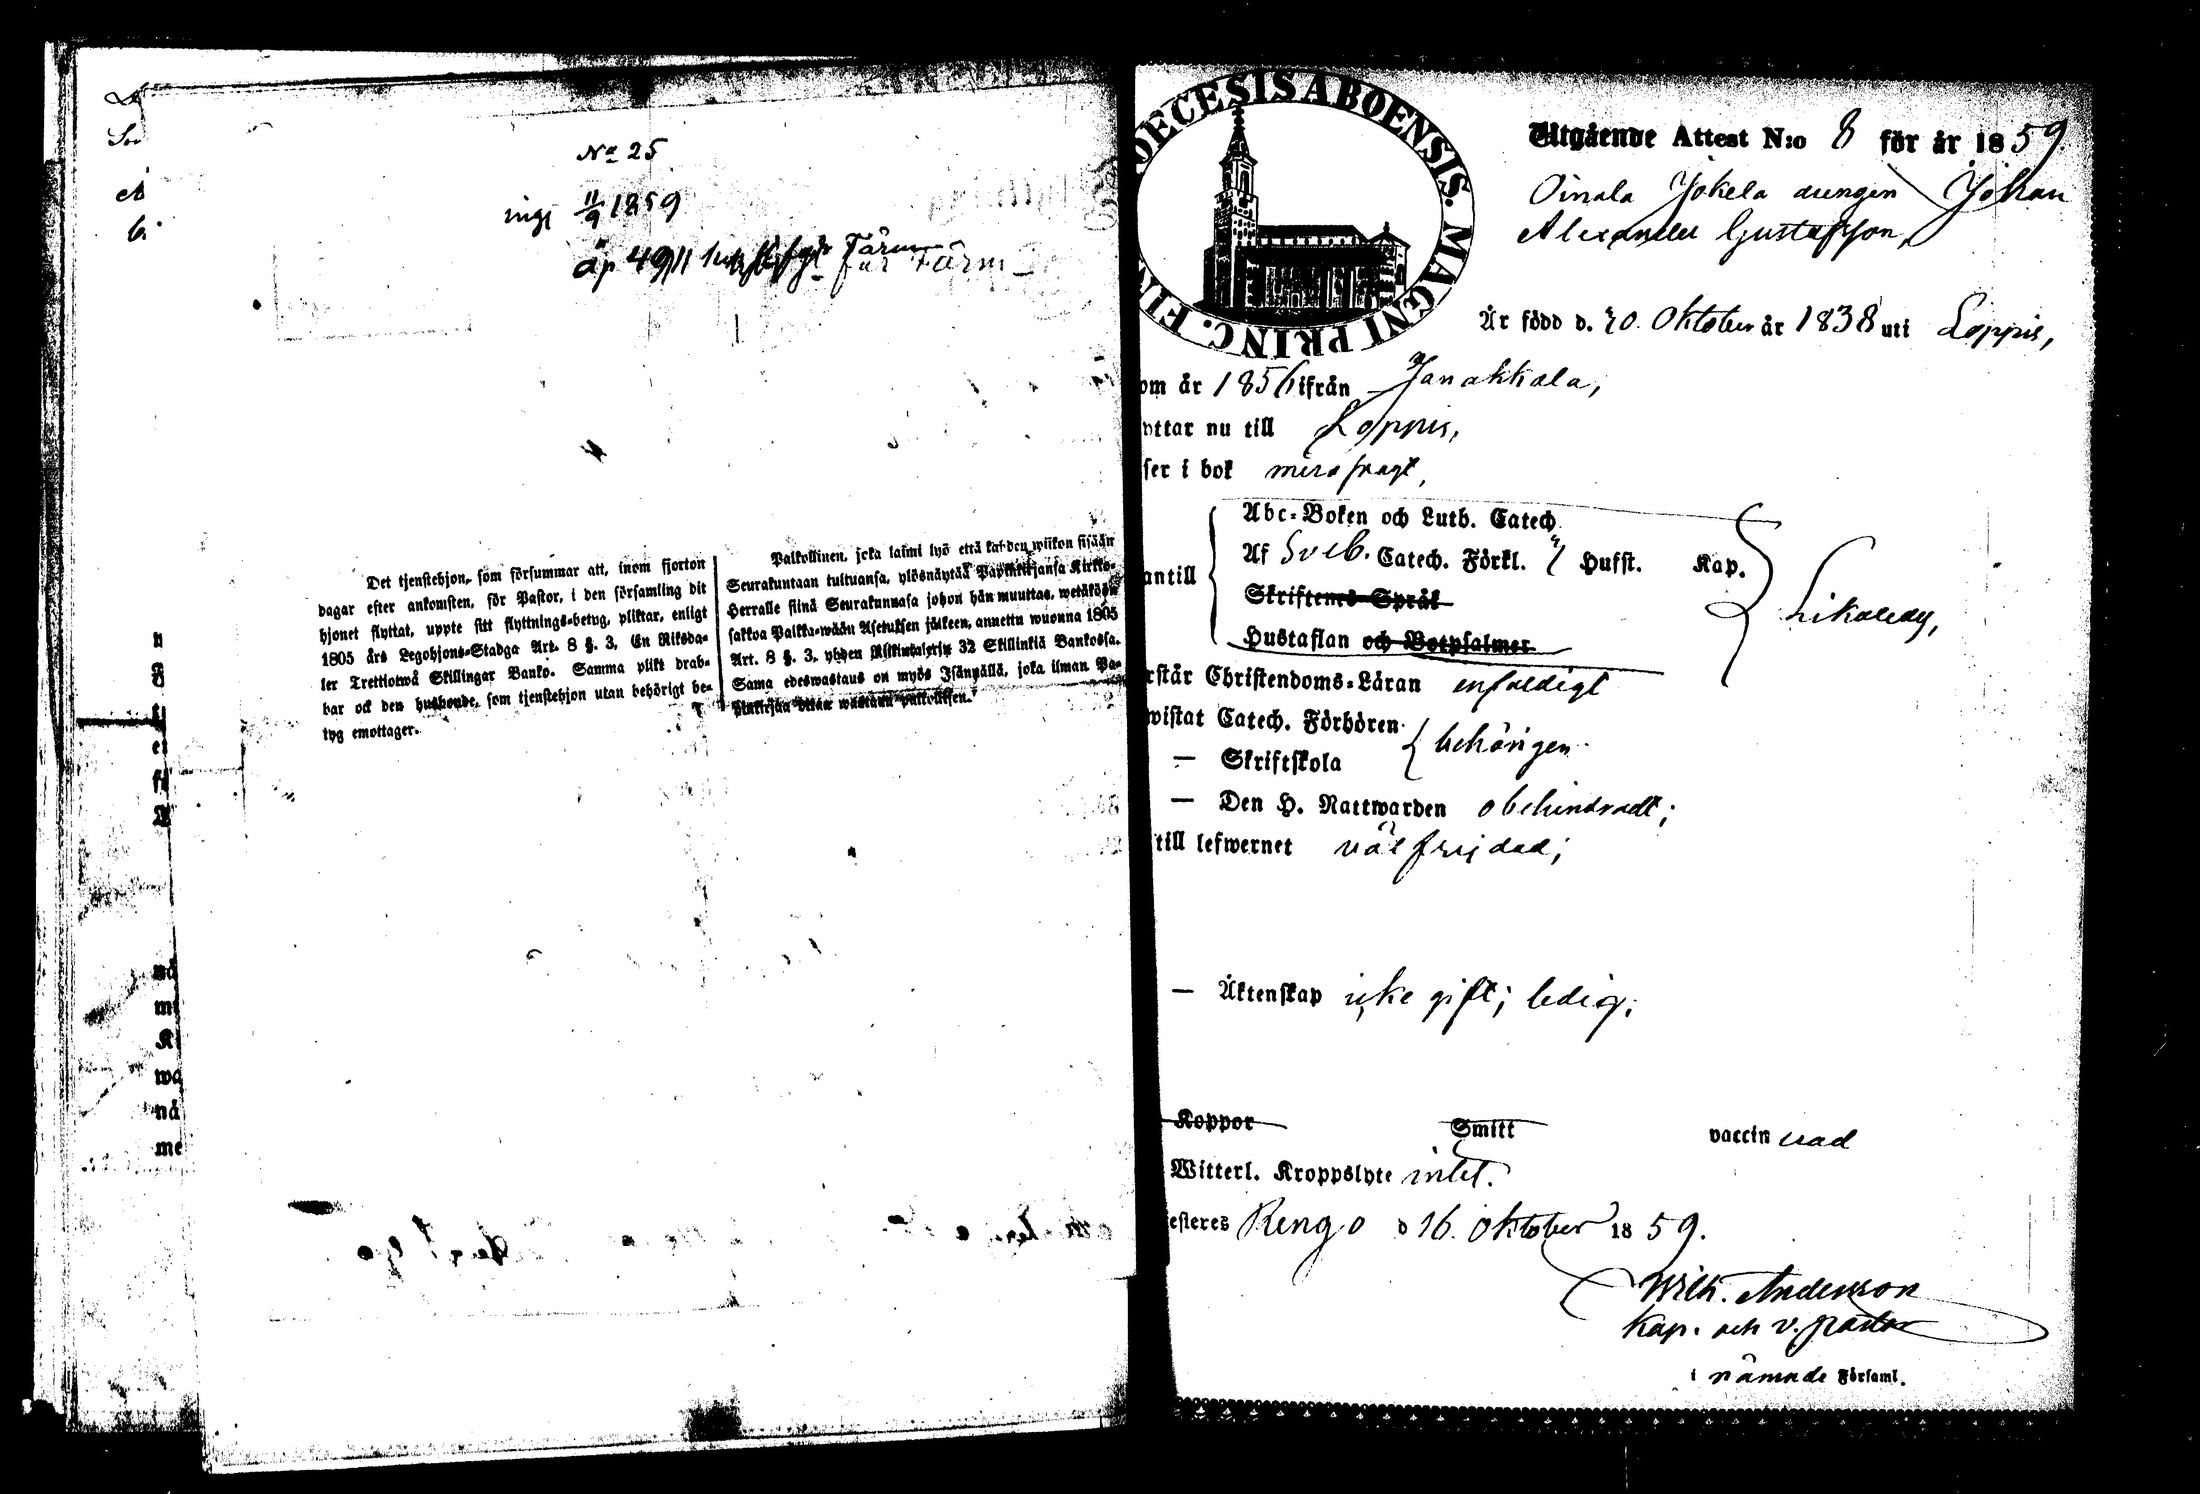 No 25
ing 11/9 1859
Det tjenstehjon, som försummar att, inom fjorton
dagar efter ankomsten, för Pastor, i den församling dit
hjonet flyttat, uppte sitt flyttnings-betyg, pliktar, enligt
1805 års Legohjons-Stadga Art. 8 §. 3, En Riksda-
ler Trettiotwå Skillingar Banko. Samma plikt drab-
bar ock den husbonde, som tjenstehjon utan behörigt be-
tyg emottager.
Palkollinen, joka laimi lyö että kahden wiikon sisään
Seurakuntaan tultuansa, ylösnäytää Papinkirjansa Kirkko-
Herralle siinä Seurakunnasa johon hän muuttaa, wetäköön
sakkoa Palkka-wään Asetuksen jälkeen, annettu wuonna 1805
Art. 8 §. 3, yhden Riikintalerin 32 Skillinkiä Bankossa.
Sama edeswastaus on myös Isännällä, joka ilman Pa-
DIOECESIS ABOENSIS. MAGNI PRINC. FIN
Utgående Attest N:o 8 för år 1859.
Oinala Jokela drengen Johan
Alexander Gustafsson,
Är född d. 20. Oktober år 1838 uti Loppis,
om år 1856 ifrån Janakkala,
yttar nu till Loppis,
ser i bok
antill
Abc-Boken och Luth. Catech.
Af Sveb. Catech. Förkl. Hufst. Kap.
Skriftenes Språk
Hustaflan och Botpsalmer
rstår Christendoms-Läran enfaldigt
wistat Catech. Förhören behörigen
— Skriftskola
— Den H. Nattwarden obehindradt;
till lefwernet väl frejdad;
— Äktenskap icke gift; ledig;
Koppor Smitt vaccinerad
Witterl. Kroppslyte intet.
esteres Rengo d 16. Oktober 1859.
Wilh. Andersson
Kap. och v. pastor
i nämnde Församl.